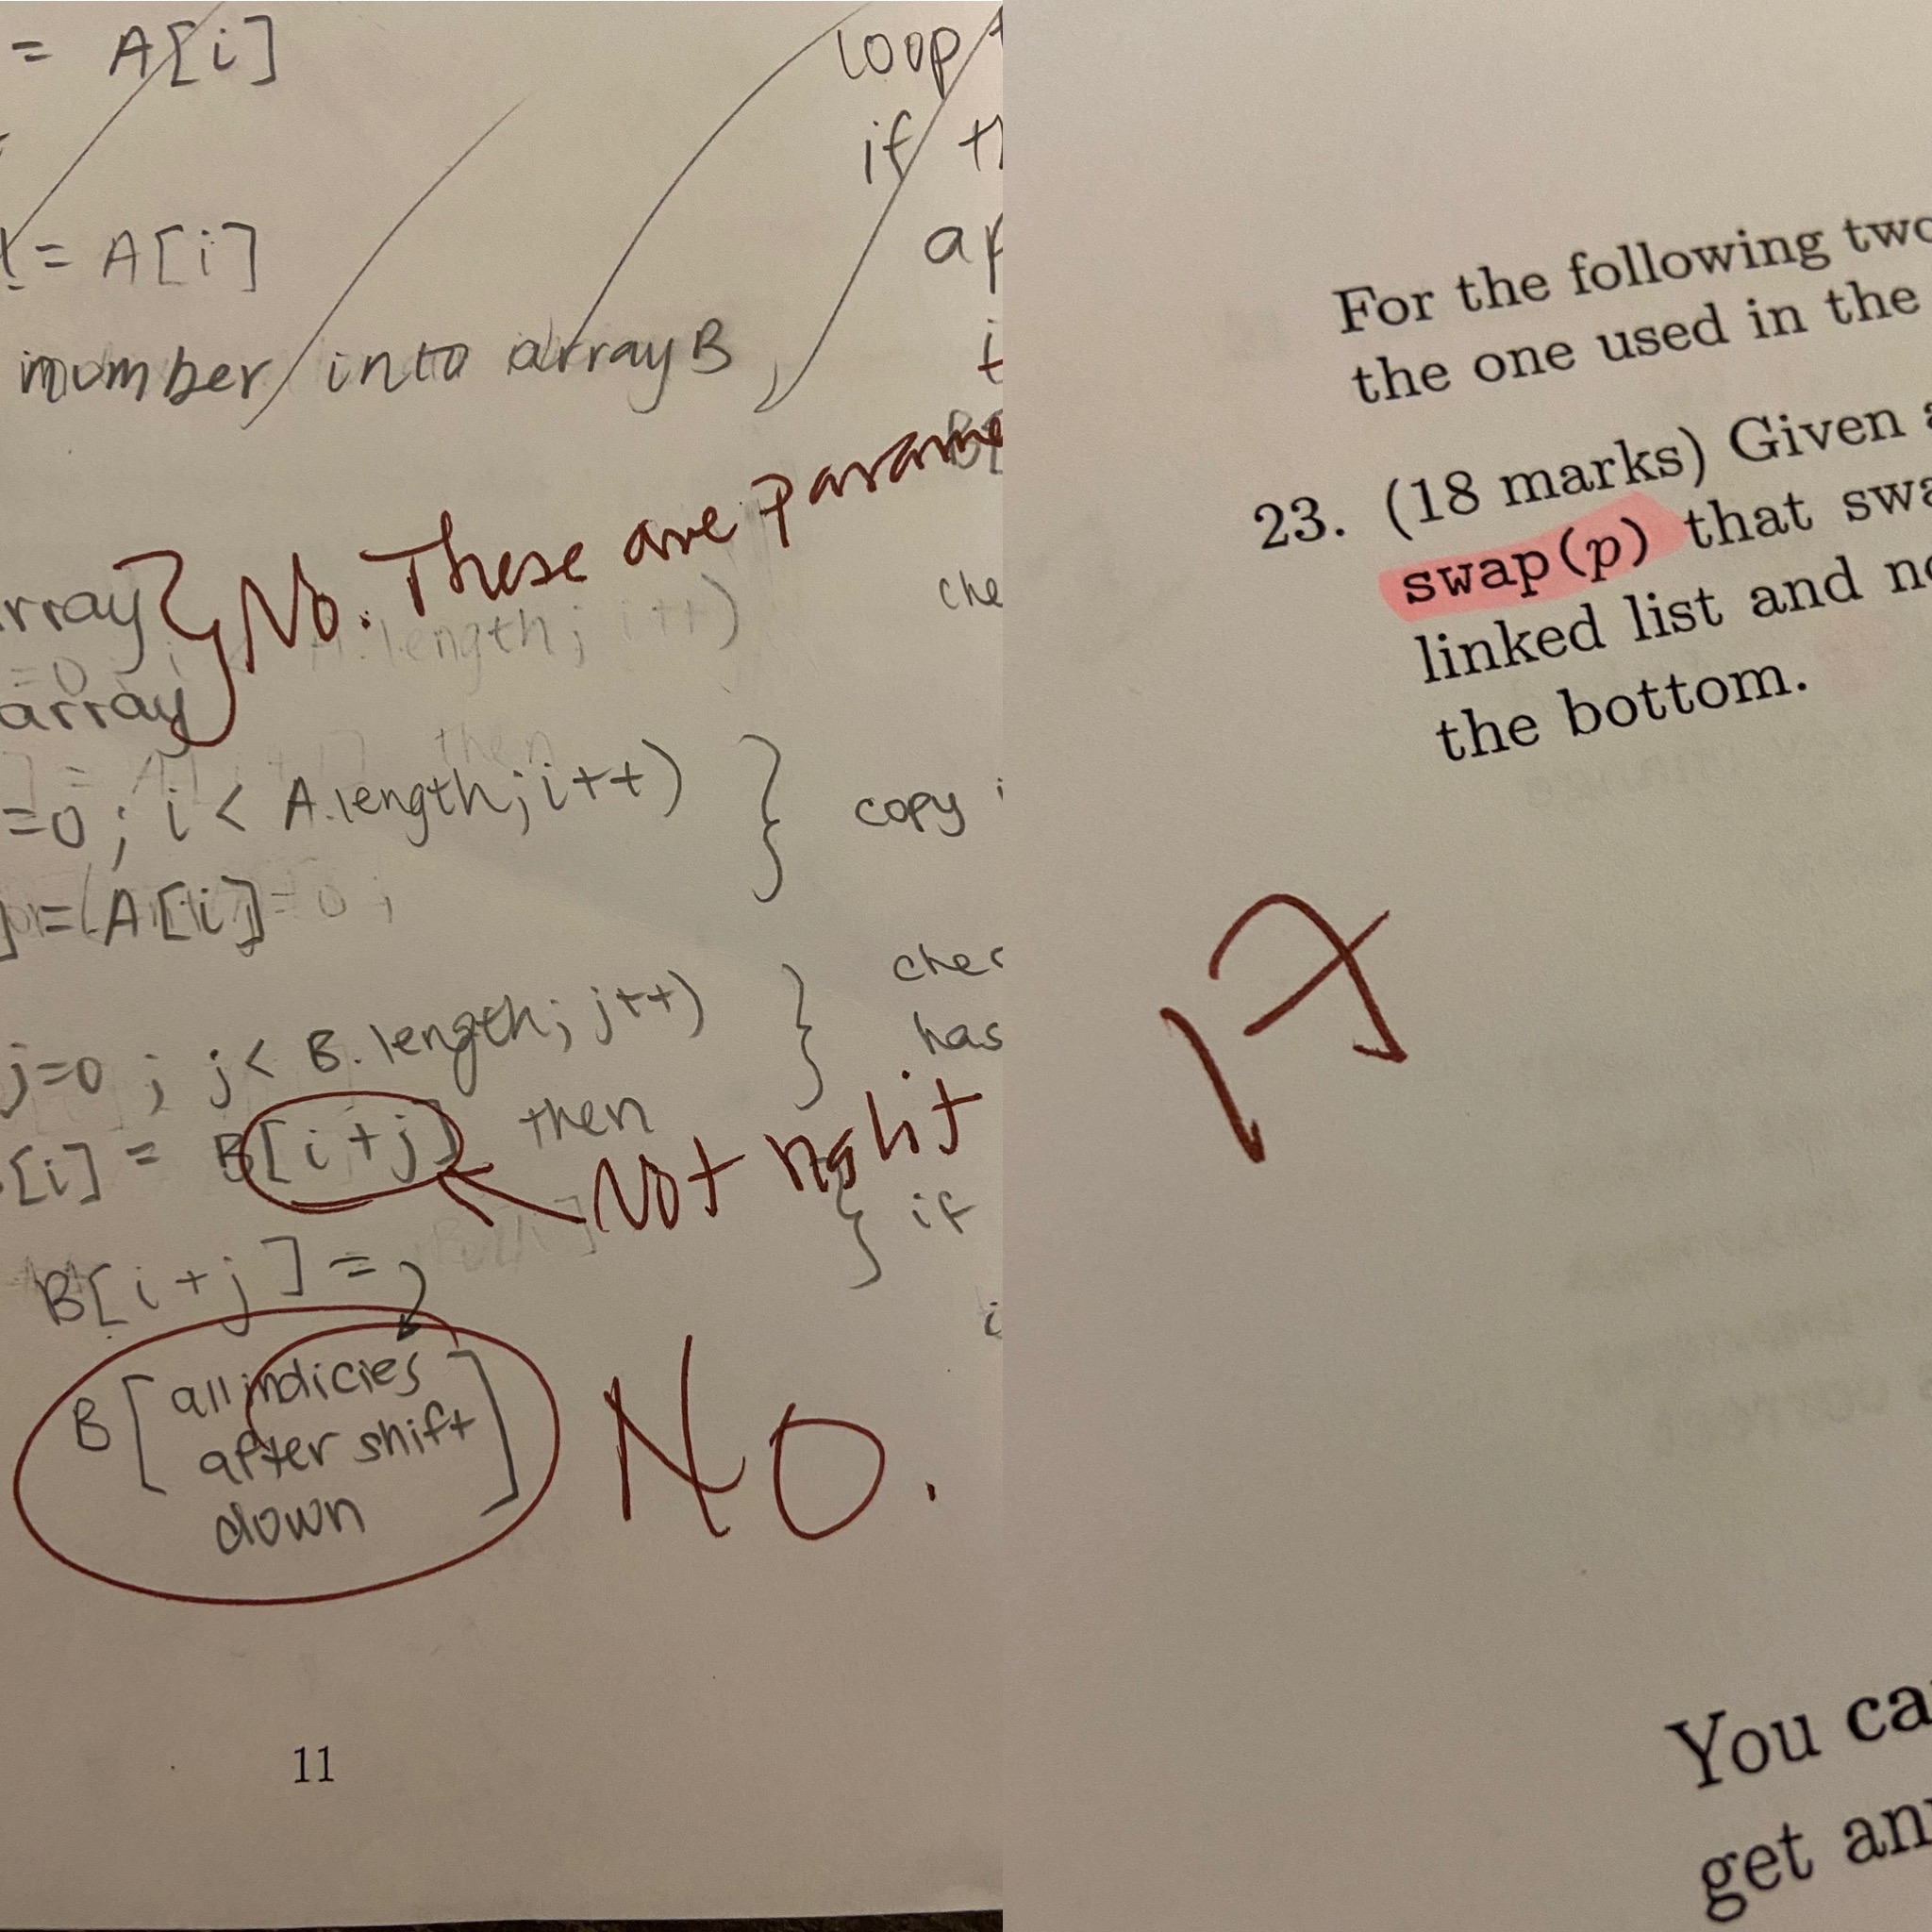 = A[i]
= A[i]
number into array B
loop
if
No. These are
array
array
=0; i < A.length; i++)
copy
= A[i]
j=0; j< B.length; j++)
has
[i] = B[i+j] then
Not right
if
B[i+j] =
B[all indicies
after shift
down]
No.
11
For the following two
the one used in the
23. (18 marks) Given
swap(p) that
linked list and
the bottom.
17
You
get